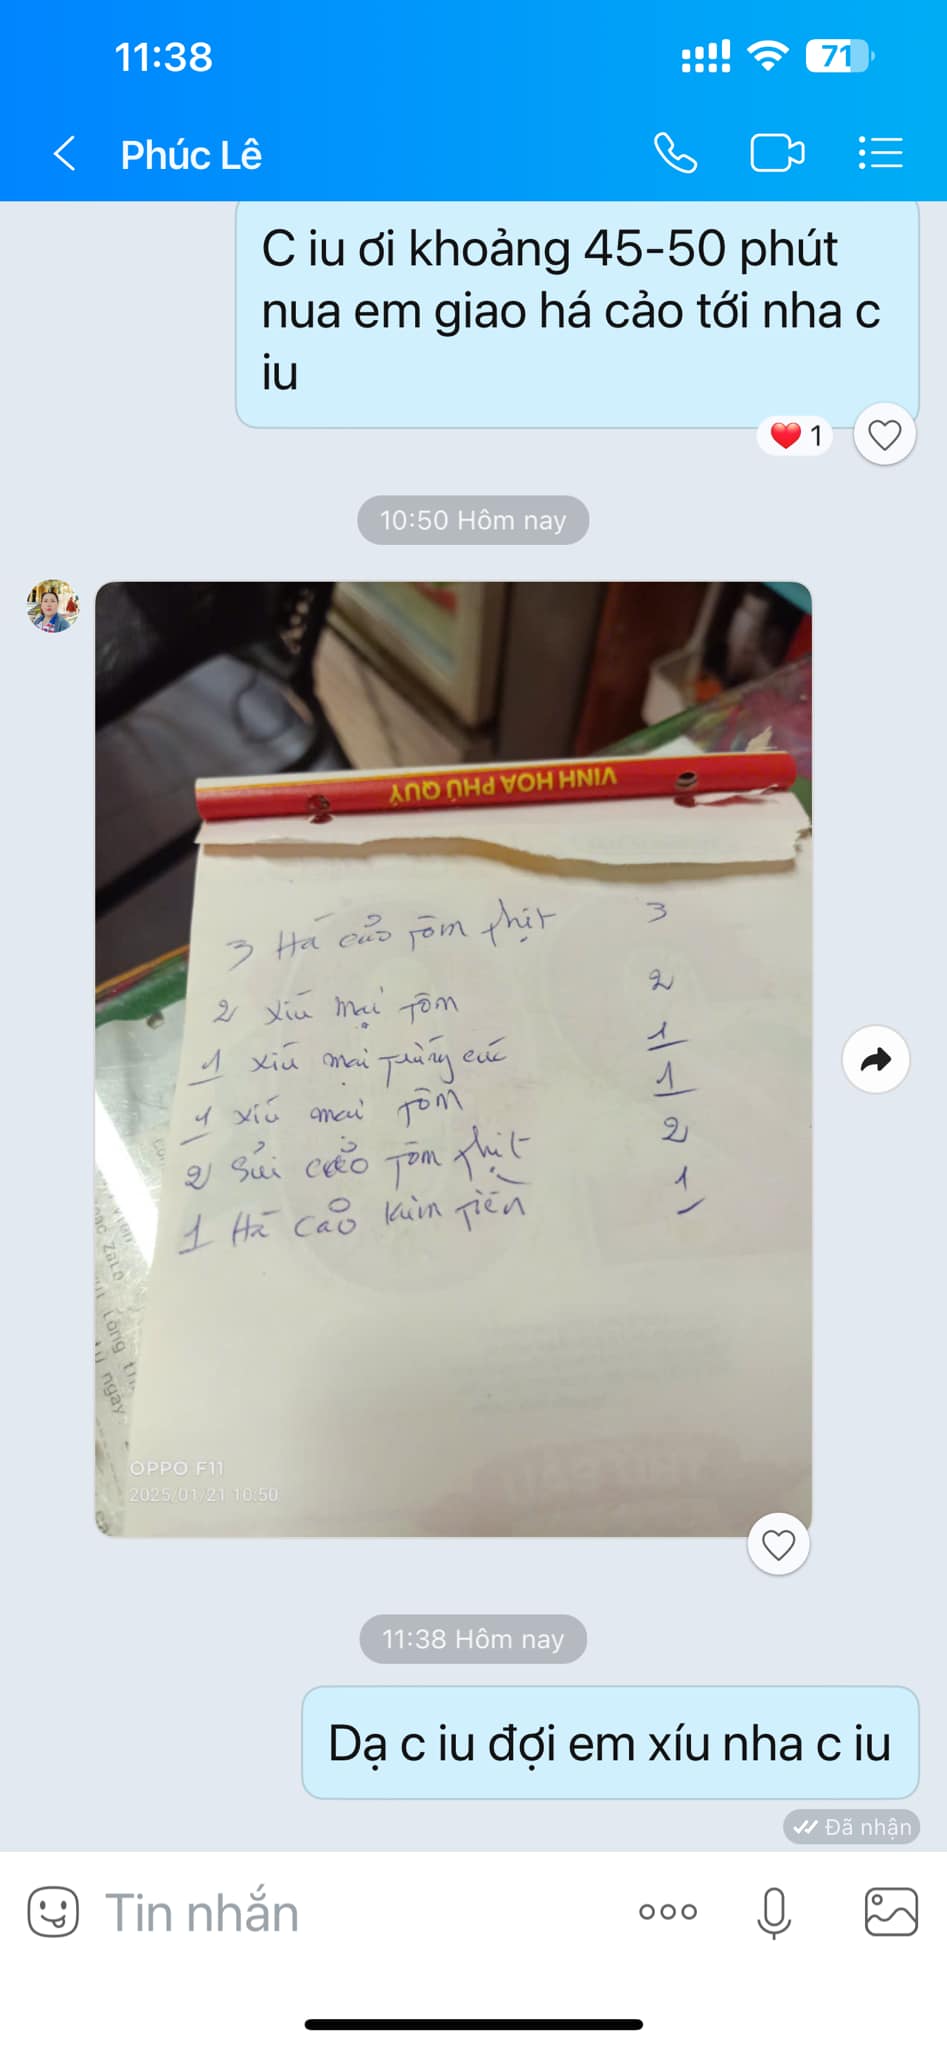 11:38
71
Phúc Lê
C iu ơi khoảng 45-50 phút
nua em giao há cảo tới nha c
iu
1
10:50 Hôm nay
VINH HOA PHÚ QUÝ
3 Há cảo Tôm thịt 3
2 xíu mại Tôm 2
1 xíu mại Trứng cúc 1
1 xíu mại Tôm 1
2 Sủi cảo Tôm thịt 2
1 Há cảo Kim Tiền 1
OPPO F11
2025/01/21 10:50
11:38 Hôm nay
Dạ c iu đợi em xíu nha c iu
Đã nhận
Tin nhắn